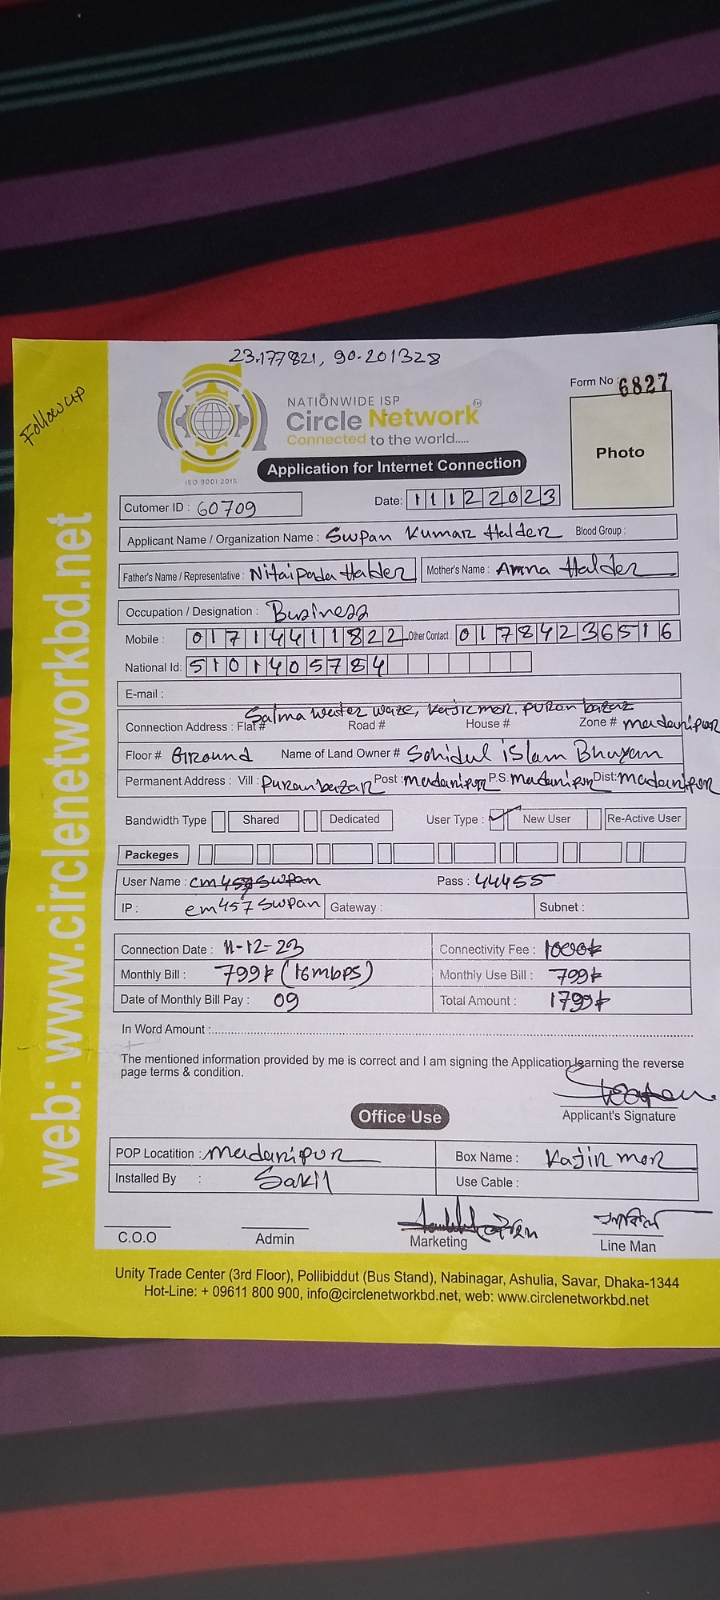 23.177821, 90.201328
Follow up
NATIONWIDE ISP
Circle Network
Connected to the world.....
ISO 9001:2015
Form No : 6827
Photo
Application for Internet Connection
Cutomer ID : 60709
Date: 11122023
Applicant Name / Organization Name : Swpan Kumar Halder Blood Group :
Father's Name / Representative : Nitaipada Halder Mother's Name : Amna Halder
Occupation / Designation : Business
Mobile : 01714411822 Other Contact : 01784236516
National Id: 5101405784
E-mail :
Salma water waze, Kajir mor, puran bazar
Connection Address : Flat # Road # House # Zone # madaripur
Floor # Ground Name of Land Owner # Sohidul islam Bhuyan
Permanent Address : Vill : Puranbazar Post : madaripur P.S. madaripur Dist: madaripur
Bandwidth Type Shared Dedicated User Type : New User Re-Active User
Packeges
User Name : cm457swpan Pass : 44455
IP : em457swpan Gateway : Subnet :
Connection Date : 11-12-23 Connectivity Fee : 1000৳
Monthly Bill : 799৳ (16mbps) Monthly Use Bill : 799৳
Date of Monthly Bill Pay : 09 Total Amount : 1799৳
In Word Amount :
The mentioned information provided by me is correct and I am signing the Application learning the reverse
page terms & condition.
Applicant's Signature
Office Use
POP Locatition : madaripur Box Name : Kajir mor
Installed By : Sakil Use Cable :
C.O.O Admin Marketing Line Man
Unity Trade Center (3rd Floor), Pollibiddut (Bus Stand), Nabinagar, Ashulia, Savar, Dhaka-1344
Hot-Line: + 09611 800 900, info@circlenetworkbd.net, web: www.circlenetworkbd.net
web: www.circlenetworkbd.net